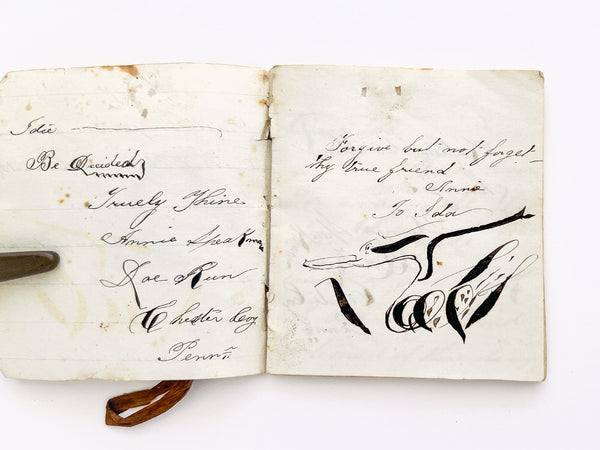 Idie
Be Decided
Truely Thine
Annie Speakman
Doe Run
Chester Coy
Penn
Forgive but not forget
thy true friend
Annie
To Ida